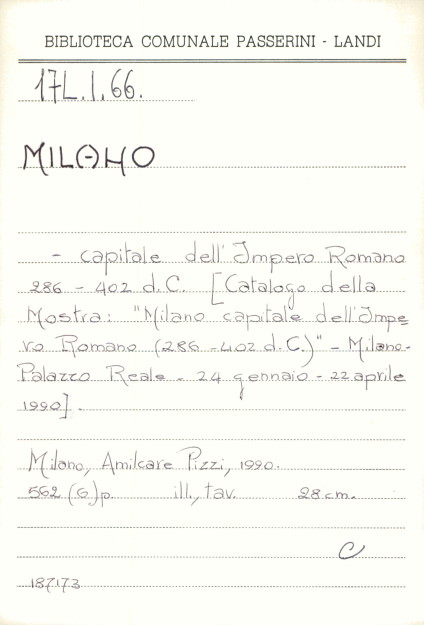 BIBLIOTECA COMUNALE PASSERINI - LANDI
17L.I.66.
MILANO
- capitale dell'Impero Romano
286 - 402 d.C. [Catalogo della
Mostra: "Milano capitale dell'Impe=
ro Romano (286 - 402 d.C.)" - Milano -
Palazzo Reale - 24 gennaio - 22 aprile
1990].
Milano, Amilcare Pizzi, 1990.
562 (6) p. ill., tav. 28 cm.
C
187173